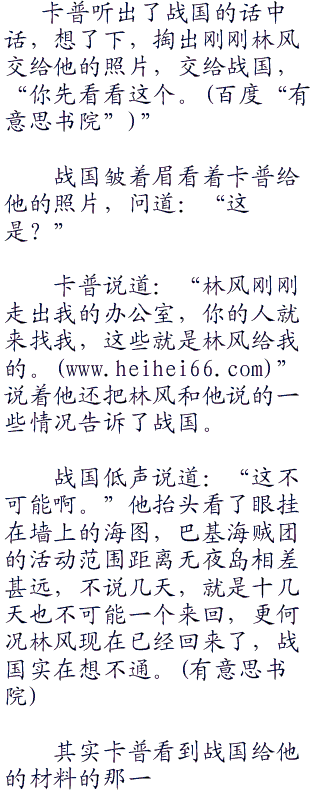 卡普听出了战国的话中
话，想了下，掏出刚刚林风
交给他的照片，交给战国，
“你先看看这个。(百度“有
意思书院”)”
战国皱着眉看着卡普给
他的照片，问道：“这
是？”
卡普说道：“林风刚刚
走出我的办公室，你的人就
来找我，这些就是林风给我
的。(www.heihei66.com)”
说着他还把林风和他说的一
些情况告诉了战国。
战国低声说道：“这不
可能啊。”他抬头看了眼挂
在墙上的海图，巴基海贼团
的活动范围距离无夜岛相差
甚远，不说几天，就是十几
天也不可能一个来回，更何
况林风现在已经回来了，战
国实在想不通。(有意思书
院)
其实卡普看到战国给他
的材料的那一